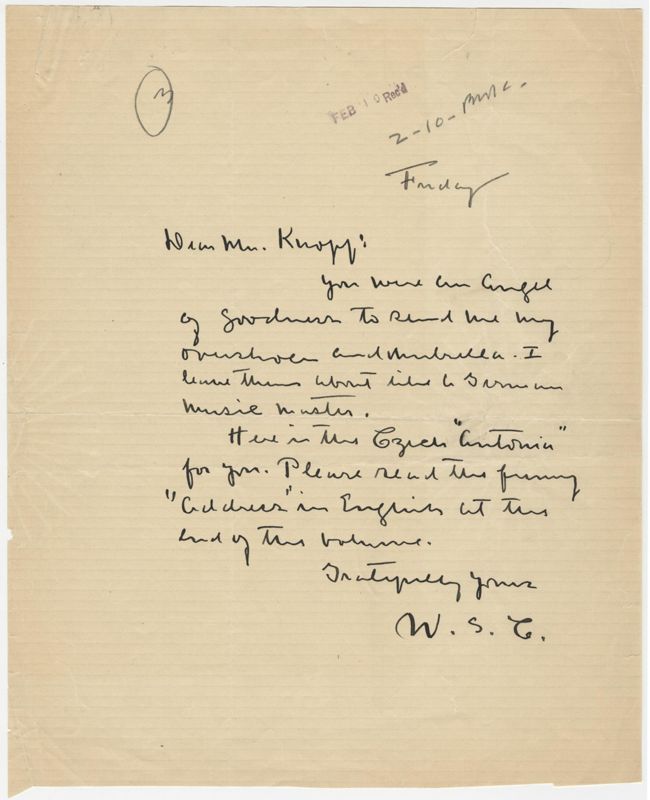 FEB 10 Rec'd
2-10-
Friday
Dear Mr. Knopf:
You were an angel
of goodness to send me my
overshoes and umbrella. I
leave them about like a German
music master.
Here is the Czech "Antonia"
for you. Please read the funny
"address" in English at the
end of the volume.
Gratefully yours
W. S. C.